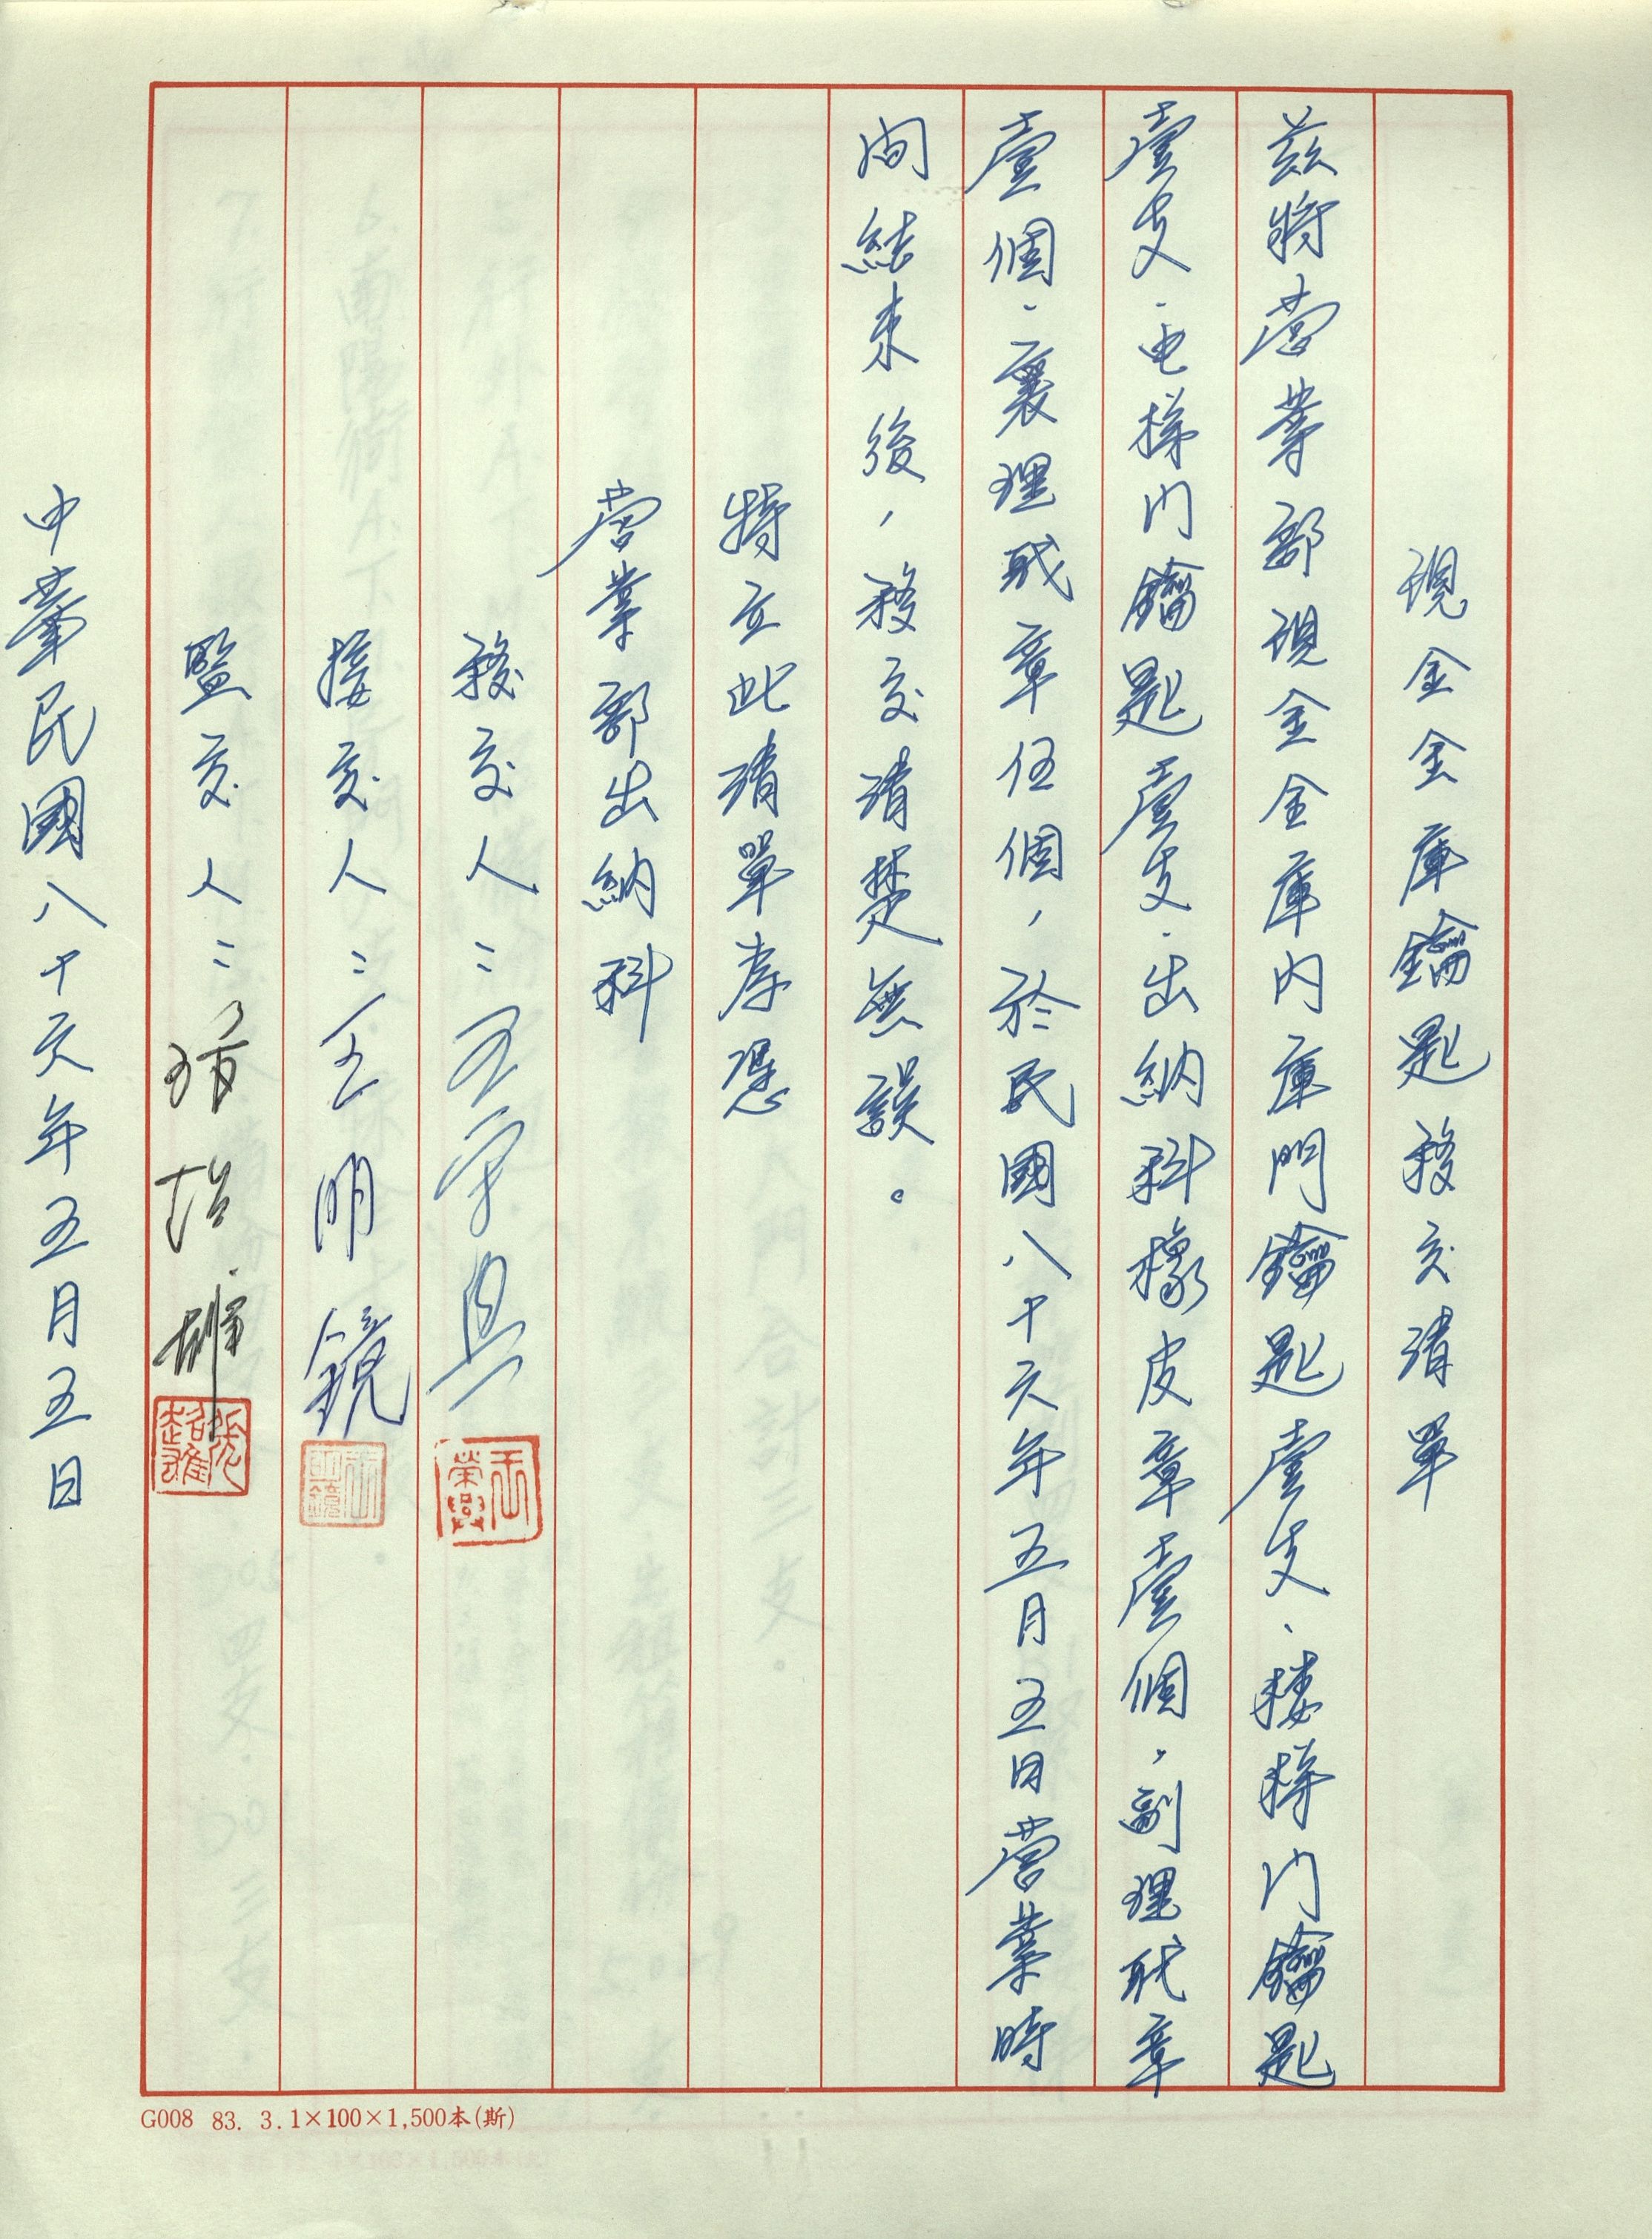 現金金庫鑰匙移交清單
茲將營業部現金金庫內庫門鑰匙壹支、樓梯門鑰匙
壹支、电梯門鑰匙壹支、出納科橡皮章壹個,副理戳章
壹個、襄理戳章伍個,於民國八十六年五月五日營業時
間結束後,移交清楚無誤。
特立此清單存憑
營業部出納科
移交人:王字
接交人:王明鏡
監交人:張超雄
中華民國八十六年五月五日
G008 83. 3. 1×100×1,500本(斯)